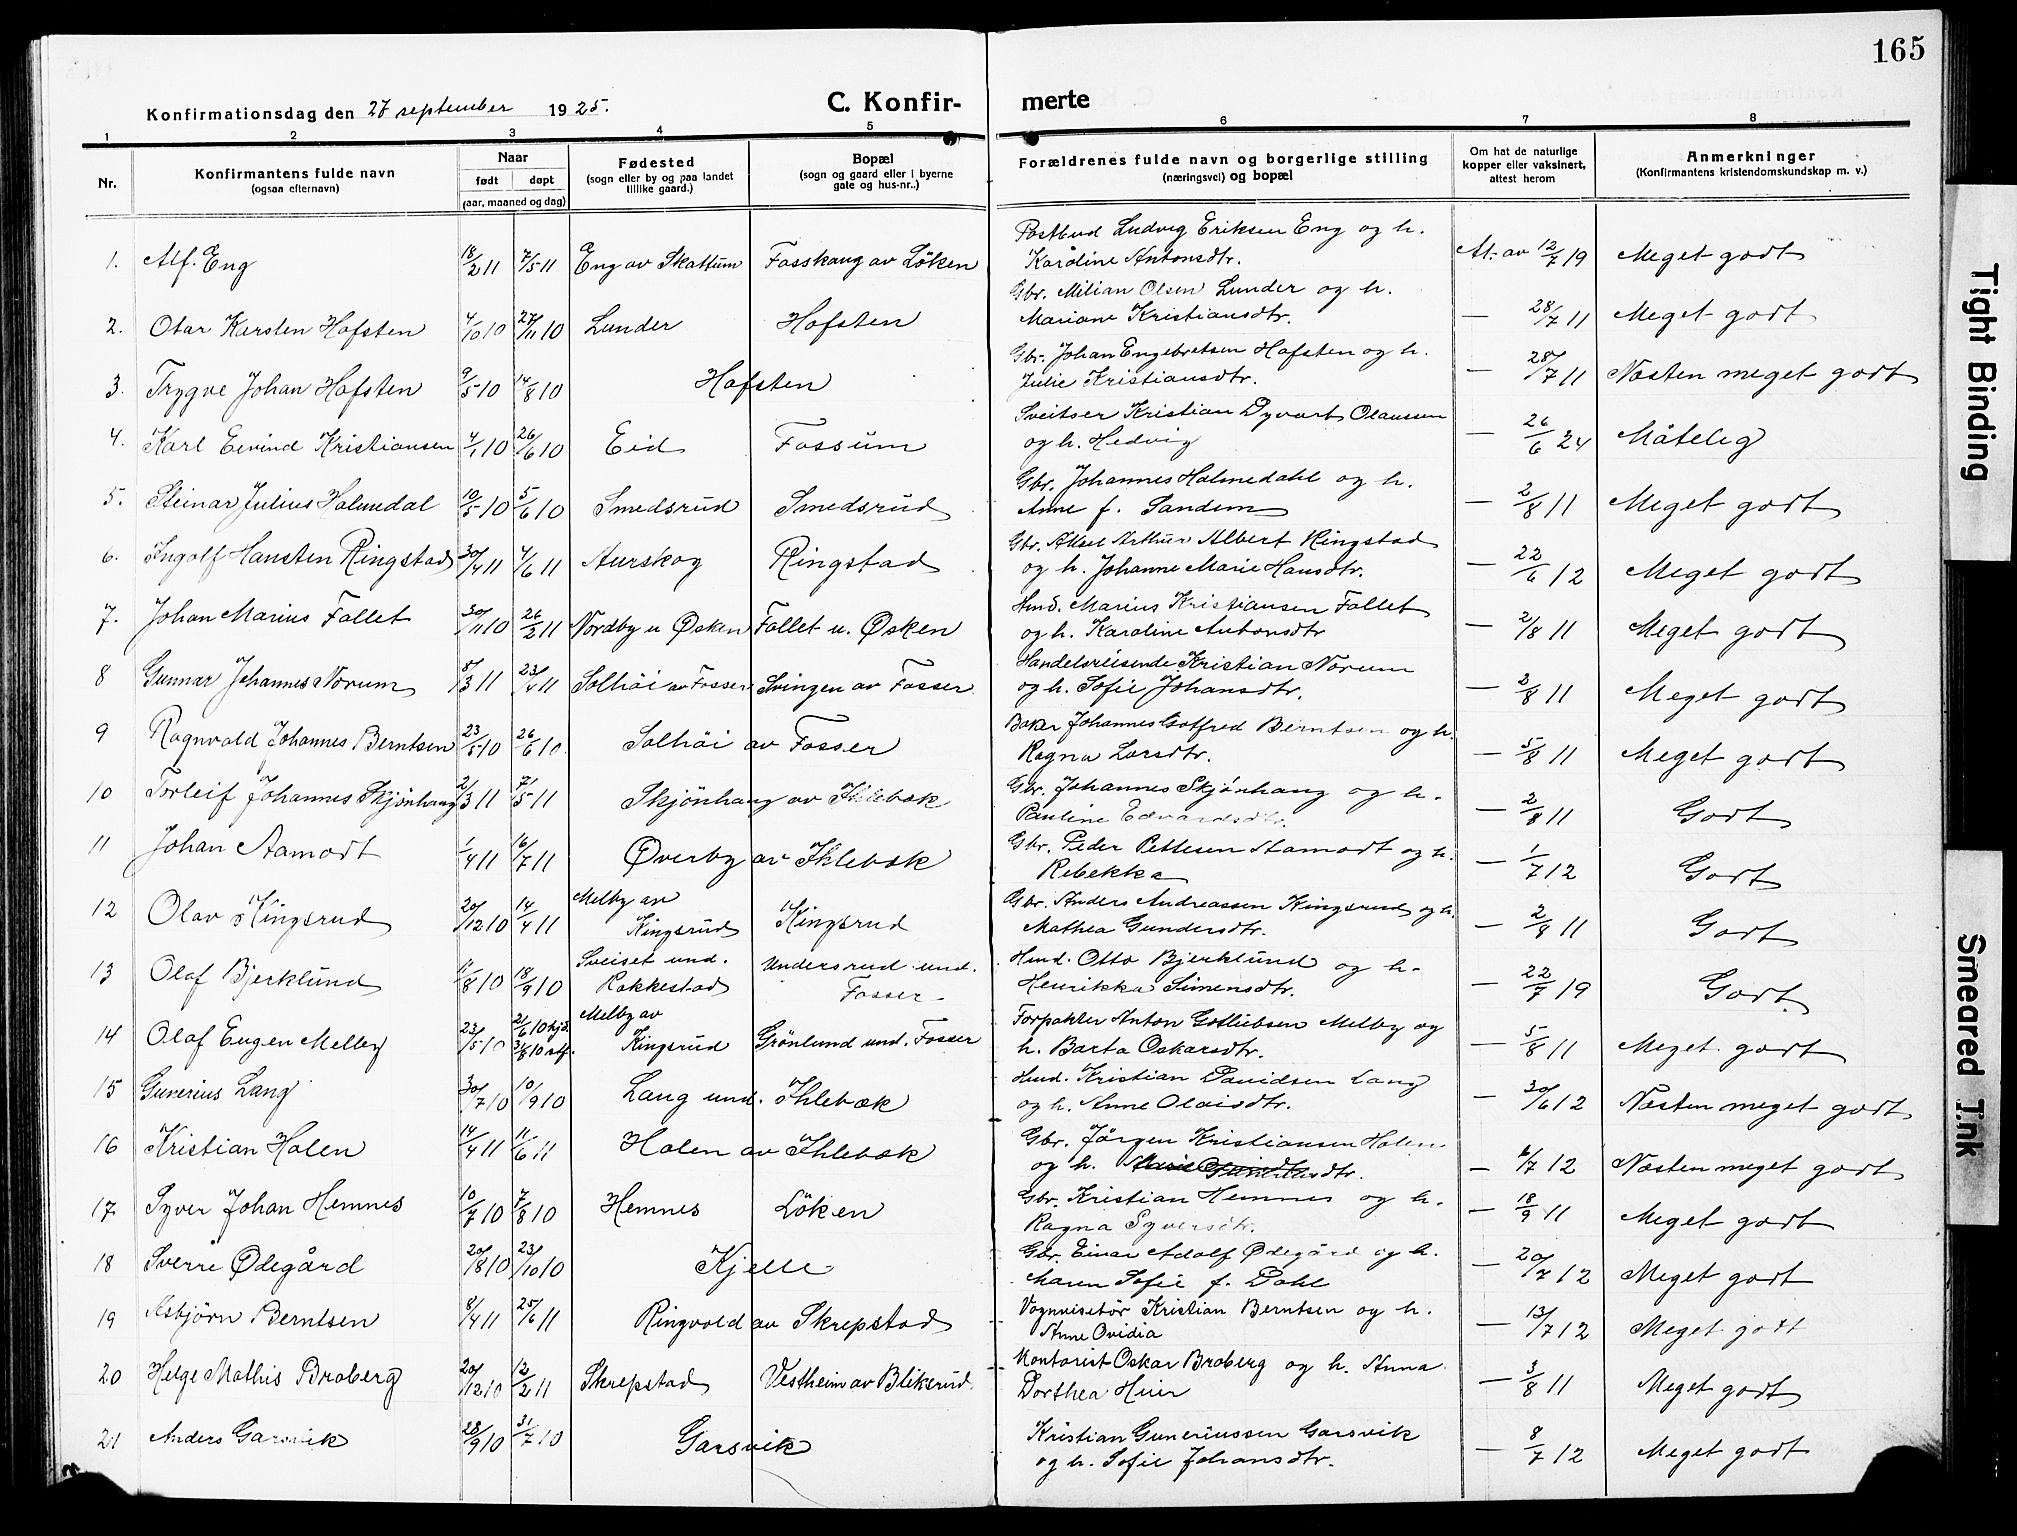 165
Konfirmationsdag den 27 september 1925.
C. Konfir- merte
1 2 3 4 5 6 7 8
Nr.
Konfirmantens fulde navn
(ogsaa efternavn)
Naar
født døpt
(aar, maaned og dag)
Fødested
(sogn eller by og paa landet
tillike gaard.)
Bopæl
(sogn og gaard eller i byerne
gate og hus-nr.)
Forældrenes fulde navn og borgerlige stilling
(næringsvei) og bopæl
Om hat de naturlige
kopper eller vaksinert,
attest herom
Anmerkninger
(Konfirmantens kristendomskundskap m. v.)
1. Alf. Eng 18/2 11 7/5 11 Eng av Skattum Fosskaug av Löken Postbud Ludvig Eriksen Eng og h.
Karoline Antonsdtr. At. av 12/7 19 Meget godt
2. Otar Karsten Hofsten 4/10 10 27/11 10 Lunder Hofsten Gbr. Milian Olsen Lunder og h.
Mariane Kristiansdtr. — 28/7 11 Meget godt
3. Trygve Johan Hofsten 9/5 10 14/8 10 Hofsten Gbr. Johan Engebretsen Hofsten og h.
Julie Kristiansdtr. — 28/7 11 Næsten meget godt
4. Karl Eivind Kristiansen 4/1 10 26/6 10 Eid Fossum Sveitser Kristian Dyvart Olaussen
og h. Hedvig — 26/6 24 Måtelig
5. Steinar Julius Holmedal 10/5 10 5/6 10 Smedsrud Smedsrud Gbr. Johannes Holmedahl og h.
Anne f. Sandem — 2/8 11 Meget godt
6. Ingolf Hansten Ringstad 30/4 11 4/6 11 Aurskog Ringstad Gbr. Aksel Arthur Albert Ringstad
og h. Johanne Marie Hansdtr. — 22/6 12 Meget godt
7. Johan Marius Follet 30/11 10 26/2 11 Nordby u Øsken Follet u. Øsken Hmd. Marius Kristiansen Follet
og h. Karoline Antonsdtr — 2/8 11 Meget godt
8 Gunnar Johannes Norum 8/3 11 23/4 11 Solhöi av Fosser Svingen av Fosser Handelsreisende Kristian Norum
og h. Sofie Johansdtr. — 2/8 11 Meget godt
9 Ragnvald Johannes Berntsen 23/5 10 26/6 10. Solhöi av Fosser Baker Johannes Gotfred Berntsen og h.
Ragna Larsdtr. — 5/8 11 Meget godt
10 Torleif Johannes Skjönhaug 2/3 11 7/5 11 Skjönhaug av Ihlebæk Gbr. Johannes Skjönhaug og h.
Pauline Edvardsdtr. — 2/8 11 Godt
11 Johan Aamodt 1/4 11 16/7 11 Øverby av Ihlebæk Gbr. Peder Pettersen Aamodt og h.
Rebekka — 1/7 12 Godt
12 Olav Kingsrud 20/12 10 14/4 11 Melby av
Kingsrud Kingsrud Gbr. Anders Andreassen Kingsrud og h.
Mathea Gundersdtr. — 2/8 11 Godt
13 Olaf Bjerklund 11/8 10 18/9 10 Sveiset und.
Rakkestad Undersrud und.
Fosser Hmd. Otto Bjerklund og h.
Henrikka Simensdtr. — 22/7 19 Godt
14 Olaf Eugen Melby 23/5 10 21/6 10 hjd.
10 stf. Melby av
Kingsrud Grönlund und. Fosser Forpakter Anton Gotliebsen Melby og
h. Barta Oskarsdtr. — 5/8 11 Meget godt
15 Gunerius Lang 30/7 10 10/9 10 Lang und. Ihlebæk Hmd. Kristian Davidsen Lang
og h. Anne Olaisdtr. — 30/6 12 Næsten meget godt
16 Kristian Holen 14/4 11 11/6 11 Holen av Ihlebæk Gbr. Jörgen Kristiansen Holen
og h. — 6/7 12 Næsten meget godt
17 Syver Johan Hemnes 10/7 10 7/8 10 Hemnes Löken Gbr. Kristian Hemnes og h.
Ragna Syversdtr. — 18/9 11 Meget godt
18 Sverre Ødegård 20/8 10 23/10 10 Kjelle Gbr. Einar Adolf Ødegård og h.
Maren Sofie f. Dahl — 20/7 12 Meget godt
19 Asbjörn Berntsen 8/4 11 25/6 11 Ringvold av Skrepstad Vognvisitör Kristian Berntsen og h.
Anne Ovidia — 13/7 12 Meget godt
20 Helge Mathis Broberg 20/12 10 12/2 11 Skrepstad Vestheim av Blikerud Kontorist Oskar Broberg og h. Anna
Dorthea — 3/8 11 Meget godt
21 Anders Garsvik 28/9 10 31/7 10 Garsvik Kristian Guneriussen Garsvik
og h. Sofie Johansdtr. — 8/7 12 Meget godt
Tight Binding
Smeared Ink